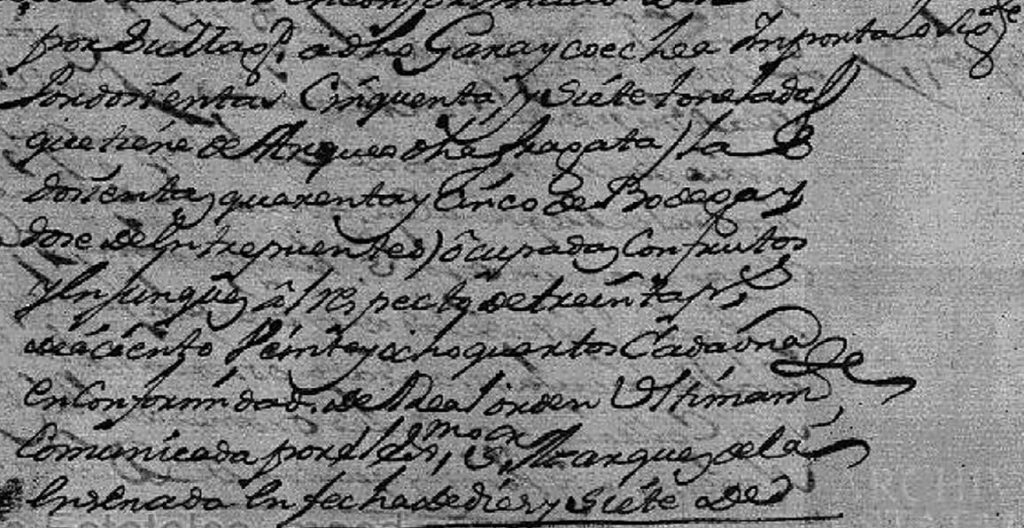 por dicha qᵗᵃ a dho Garaycoechea Importa lo sigᵗᵉ
Por dosientas Cinquenta, y siete toneladas
que tiene de Arqueo dha fragata) las
dosientas quarenta y Cinco de Bodega y
dose de Entrepuentes) ocupadas Con frutos
y enjunques al respecto de treinta ps,
de a ciento Veinte y ocho quartos Cada una de
En Conformidad, de Real orden Vltimamᵗᵉ
Comunicada por el Exᵐᵒ Sᵒʳ Marques de la
Ensenada En fecha de dies y siete de